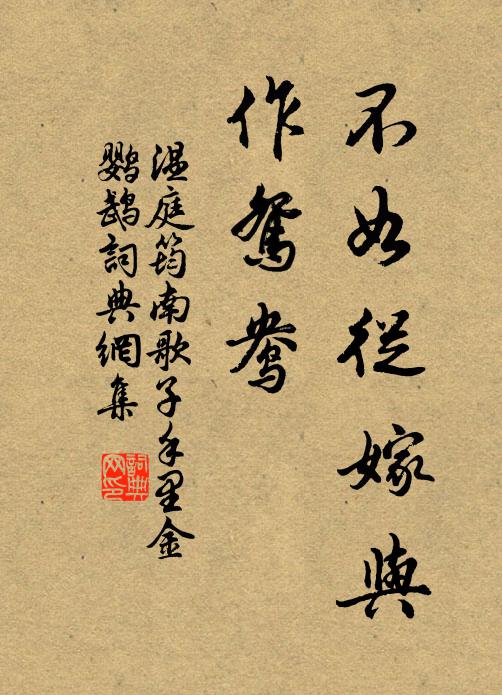 不如從嫁與
作鴛鴦
溫庭筠南歌子手里金
鸚鵡詞典網集
詞典
网印